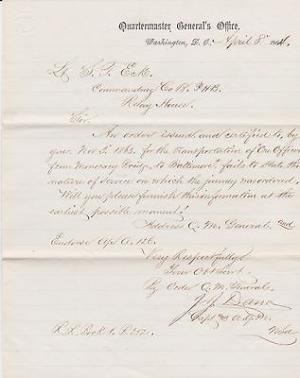 Quartermaster General's Office,
Washington, D. C. April 8th
Lt. S. F.
Commanding Co.
Relay House.
Sir.
An order issued and certified to, by
you, Nov. 5, 1863, for the transportation of One Officer
from Monocacy Bridge to Baltimore, fails to state the
nature of service on which the journey was ordered.
Will you please furnish this information at the
earliest possible moment?
Address Q. M. General, and
Endorse
Very Respectfully
Your Obt Servt.
By Order Q. M. General
J. J. Dana
Capt & A.Q.M.
R. R. Book 6. P. 252.